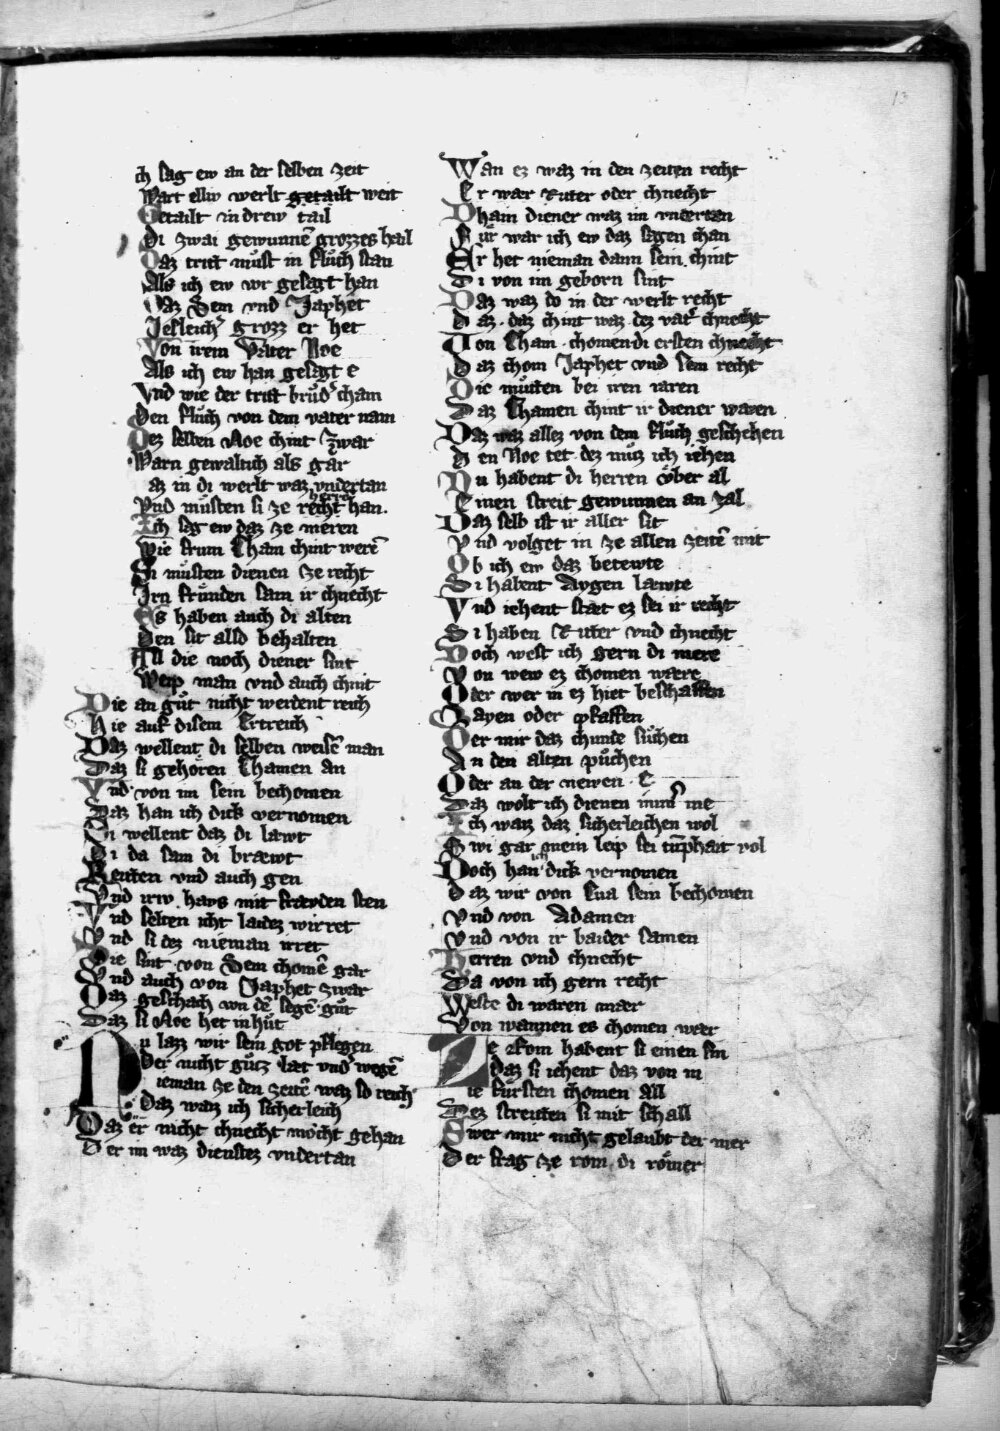 13
ich sag ew an der selben zeit
Wart elliv werlt getailt weit
Getailt in drew tail
di zwai gewunnē grozzes hail
Daz tritt můst in flůch stan
Als ich ew vor gesagt han
Daz Sem vnd Japhet
Jesleich grozz er het
Von irem Vater Noe
Als ich ew han gesagt e
Vnd wie der tritt brůd cham
Den flůch von dem vater nam
Dez selben Noe chint zwar
Warn gewaltich als gar
az in di werlt waz vndertan
Vnd můsten si ze recht han.
herrn
Ich sag ew daz ze meren
Wie frum Cham chint werē
Si můsten dienen ze recht
Jrn frunden sam ir chnecht
Es haben auch di alten
Den sit also behalten
All die noch diener sint
Weip man vnd auch chint
Die an gůt nicht werdent reich
Hie auf disem Ertreich
Daz wellent di selben weisē man
Daz si gehoren Chamen an
Vnd von im sein bechomen
Daz han ich dick vernomen
Si wellent daz di lawt
Di da sam di brawt
Reuten vnd auch gen
Vnd irw haws mit frawden sten
Vnd selten icht laides wirret
Vnd si dez nieman irret
Die sint von Sem chomē gar
Vnd auch von Japhet zwar
Daz geschach von dē segē gůt
Daz si Noe het in hůt
Nu lazz wir sein got pflegen
Der nicht gůtz lat vnd wegē
ieman ze den zeitē waz so reich
Daz waz ich sicherleich
Daz er nicht chnecht mocht gehan
Der im waz dienstez vndertan
Wan ez waz in den zeiten recht
Er war Ritter oder chnecht
Dham diener waz im vndertan
Fůr war ich ew daz sagen chan
Er het nieman dann sein chint
Di von im geborn sint
Daz waz do in der werlt recht
Daz daz chint waz dez vat chnecht
Von Cham chomen di ersten chnecht
Daz chom Japhet vnd sem recht
Die můsten bei iren iaren
Daz Chamen chint ir diener waren
Daz waz allez von dem flůch geschehen
Den Noe tet dez můz ich iehen
Nu habent di herren vber al
Einen streit gewunnen an zal
Daz selb ist ir aller sit
Vnd volget in ze allen zeitē mit
Ob ich ew daz betewte
Si habent Aygen lawte
Vnd iehent stat ez sei ir recht
Si haben Ritter vnd chnecht
Doch west ich gern di mere
Von wew ez chomen wære
Oder wer in ez hiet beschaffen
Layen oder pfaffen
Der mir daz chunde sůchen
An den alten půchen
Oder an der newen E
Daz wolt ich dienen im me
Ich waiz daz sicherleichen wol
Swi gar mein leip sei tūphait vol
Doch han ich dick vernomen
Daz wir von Eua sein bechomen
Vnd von Adamen
Vnd von ir baider samen
Herren vnd chnecht
Da von ich gern recht
Weste di waren mær
Von wannen es chomen wær
Ze Rom habent si einen sin
Daz si iehent daz von in
ie fůrsten chomen All
Dez streiten si mit schall
Swer mir nicht gelaubt der mer
Der frag ze rom di romer